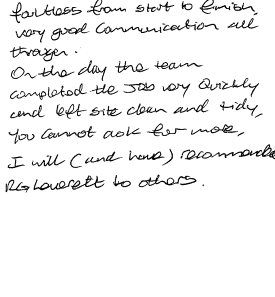 faultless from start to finish,
very good communication all
through.
On the day the team
completed the job very quickly
and left site clean and tidy,
you cannot ask for more,
I will (and have) recommended
RG Leverett to others.